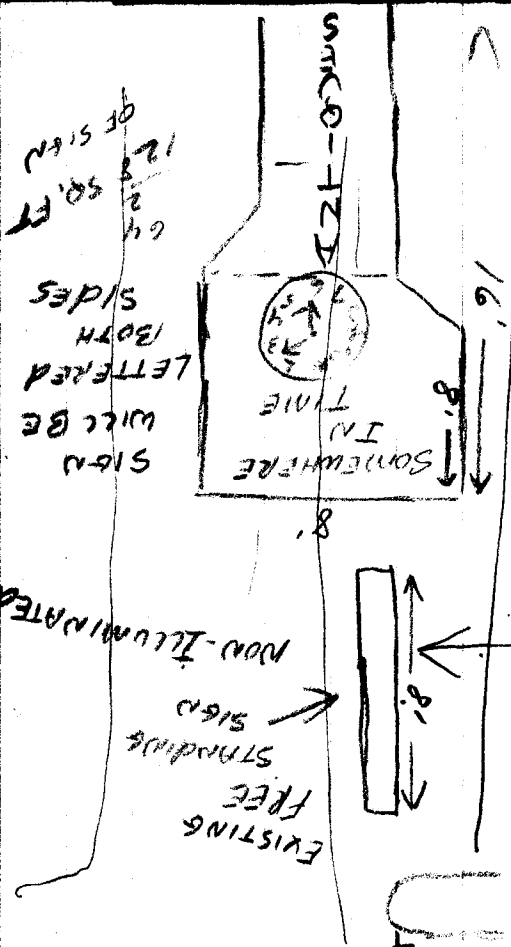 EXISTING
FREE
STANDING
SIGN
8'
NON-ILLUMINATED
8'
SOMEWHERE
IN
TIME
8'
16'
SIGN
WILL BE
LETTERED
BOTH
SIDES
64
2 SQ. FT
128 OF SIGN